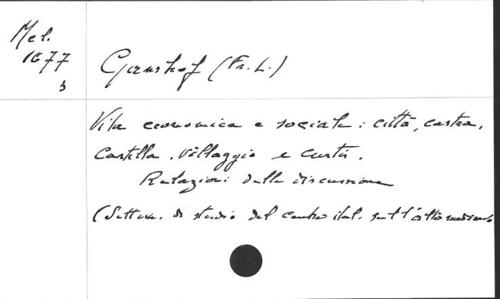 Mel.
1677
3
Ganshof (Fr. L.)
Vita economica e sociale: città, castra,
Castella, Villaggio e curtis.
Relazioni sulla discussione
(Settim. di studio del centro ital. sull'alto medioevo